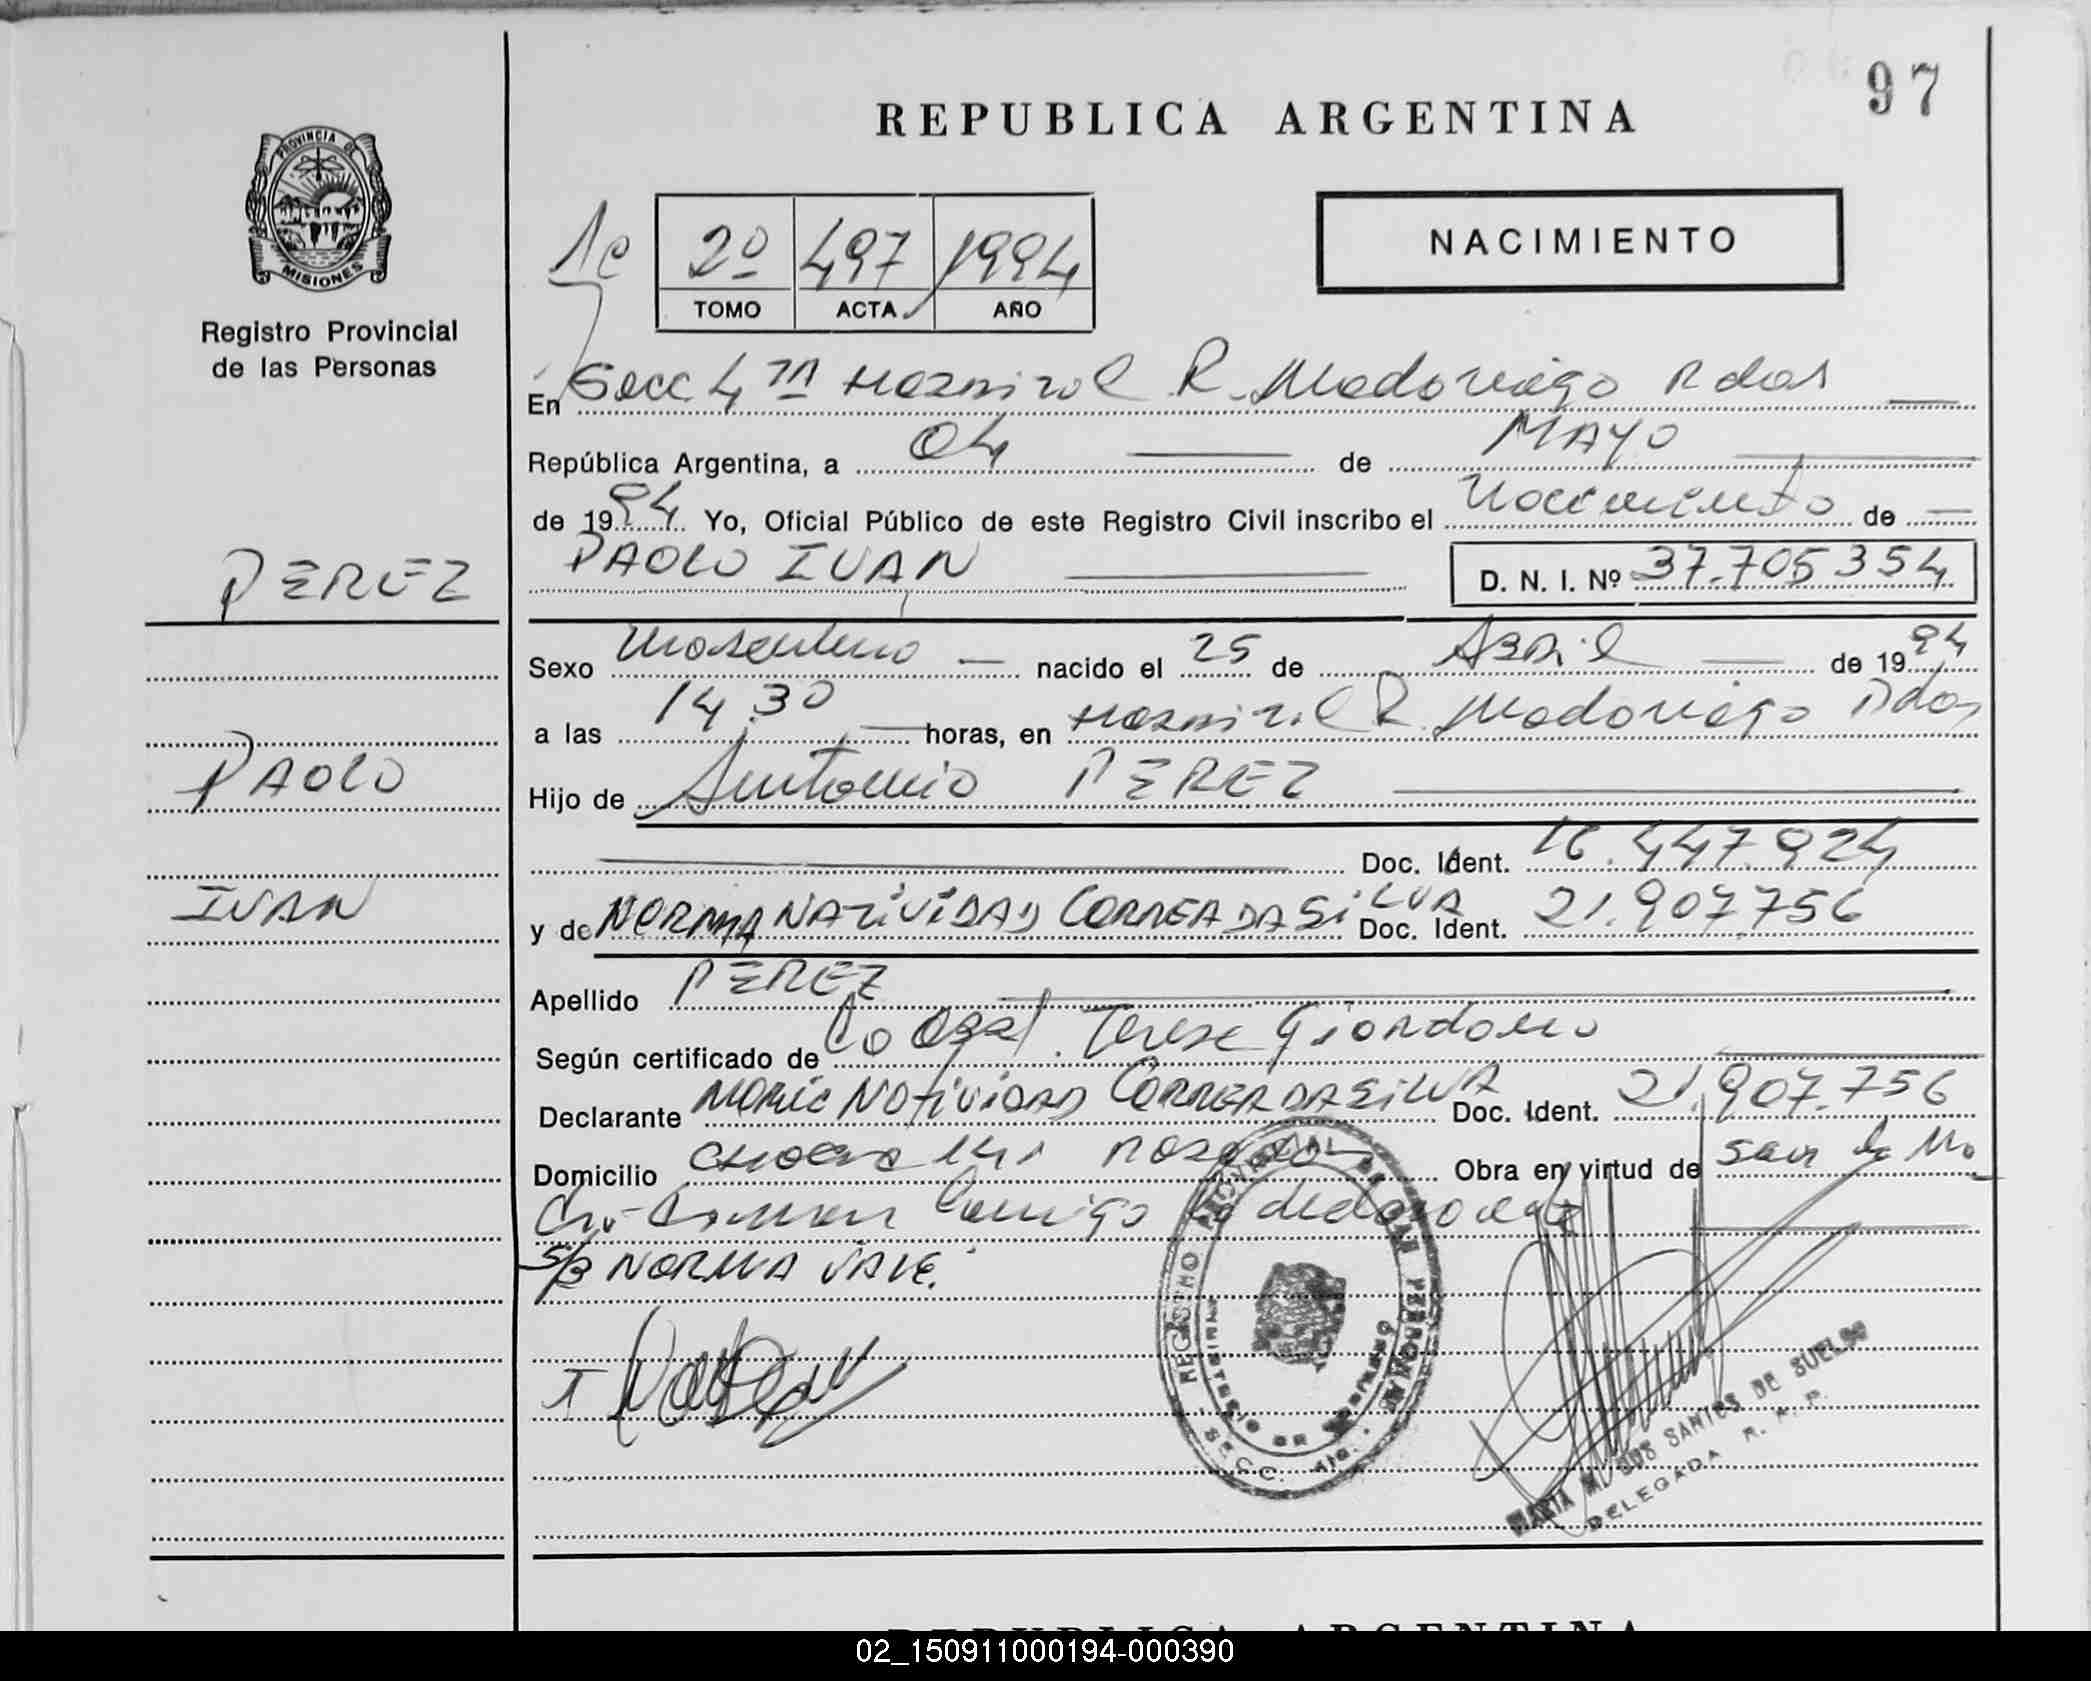 97
REPUBLICA ARGENTINA
PROVINCIA DE
MISIONES
Registro Provincial
de las Personas
NACIMIENTO
2º 497 1994
TOMO ACTA AÑO
En Secc 4ta Hospital R. Madariaga Pdas
República Argentina, a 04 de MAYO
de 1994 Yo, Oficial Público de este Registro Civil inscribo el nacimiento de
PAOLO IVAN D. N. I. Nº 37.705354
PEREZ
PAOLO
IVAN
Sexo masculino nacido el 25 de Abril de 1994
a las 14,30 horas, en Hospital R. Madariaga Pdas
Hijo de Antonio PEREZ
Doc. Ident. 16.447.924
y de NORMA NATIVIDAD CORREA DA SILVA Doc. Ident. 21.907.756
Apellido PEREZ
Según certificado de la Obst. Teresa Giordano
Declarante Natividad CORREA DA SILVA Doc. Ident. 21.907.756
Domicilio Obra en virtud de
conmigo la declarante
S/B NORMA VALE.
REGISTRO PROVINCIAL DE LAS PERSONAS
MINISTERIO DE GOBIERNO
SECC.
MARIA DOS SANTOS DE SUELDO
DELEGADA R. P. P.
REPUBLICA ARGENTINA
02_150911000194-000390